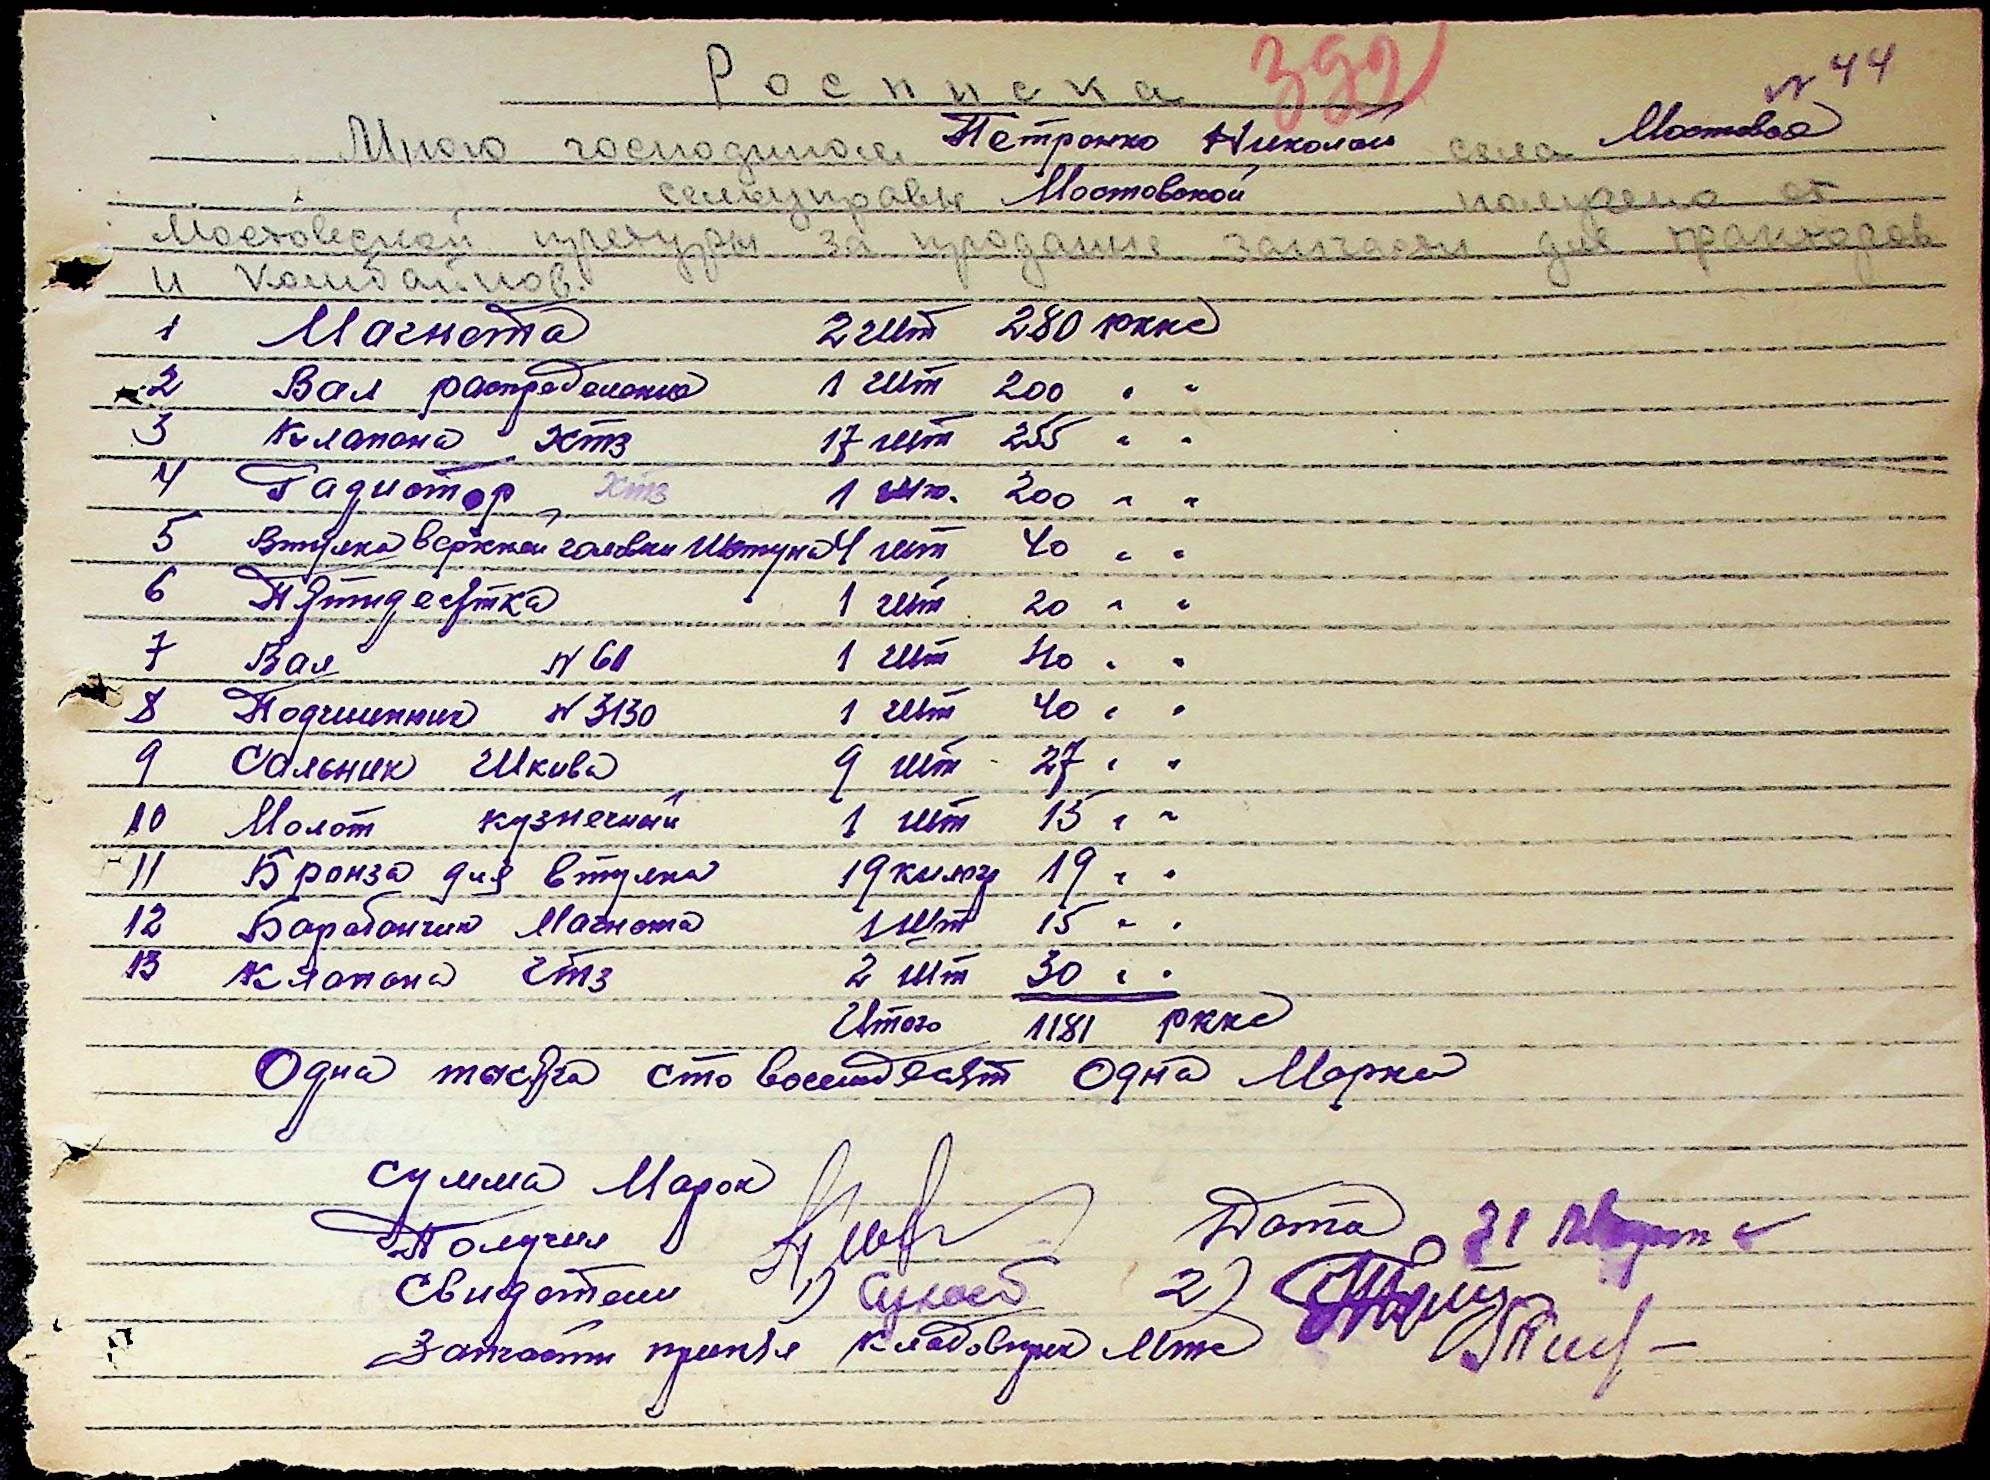 Росписка 392
№ 44
Мною господином Петренко Николай села Мостовое
сельуправы Мостовской получено от
Мостовской претуры за проданые запчасти для тракторов
и комбайнов.
1 Магнета 2 шт 280 ркке
2 Вал распределение 1 шт 200 " "
3 Клапана ХТЗ 17 шт 255 " "
4 Радиотор ХТЗ 1 шт. 200 " "
5 Втулка верхней головки Шатуна 4 шт 40 " "
6 Пятидесятка 1 шт 20 " "
7 Вал № 61 1 шт 40 " "
8 Подшипник № 3130 1 шт 40 " "
9 Сальник Шкива 9 шт 27 " "
10 Молот кузнечный 1 шт 15 " "
11 Бронза для втулка 19 килогр 19 " "
12 Барабанчик Магнета 1 шт 15 " "
13 Клапана ЧТЗ 2 шт 30 " "
Итого 1181 ркке
Одна тысяча сто восемдесят Одна Марка
Сумма Марок
Получил Дата 31 Августа
Свидетели 1) 2)
Запчасти принял кладовщик Мтс